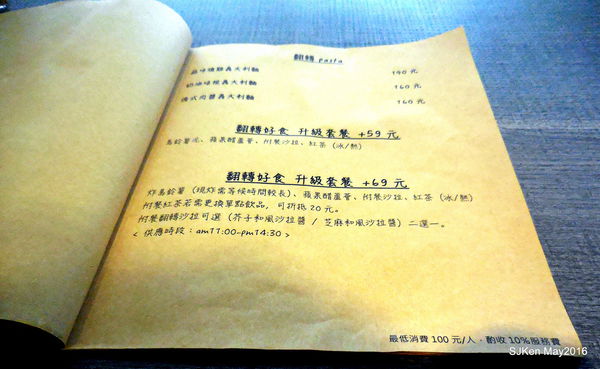 翻轉 pasta
義大利麵 190元
奶油 義大利麵 160元
義式肉醬義大利麵 160元
翻轉好食 升級套餐 +59 元
馬鈴薯泥、蘋果醋蘆薈、附餐沙拉、紅茶 (冰/熱)
翻轉好食 升級套餐 +69 元
炸馬鈴薯 (現炸需等候時間較長)、蘋果醋蘆薈、附餐沙拉、紅茶 (冰/熱)
附餐紅茶若需更換單點飲品, 可折抵20元。
附餐翻轉沙拉可選 (芥子和風沙拉醬 / 芝麻和風沙拉醬) 二選一。
< 供應時段:am11:00-pm14:30 >
最低消費 100 元/人 · 酌收 10%服務費
SJKen May2016